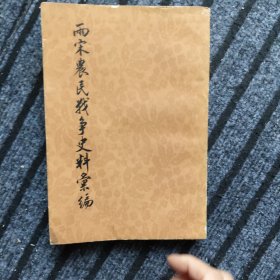 两宋农民战争史料汇编